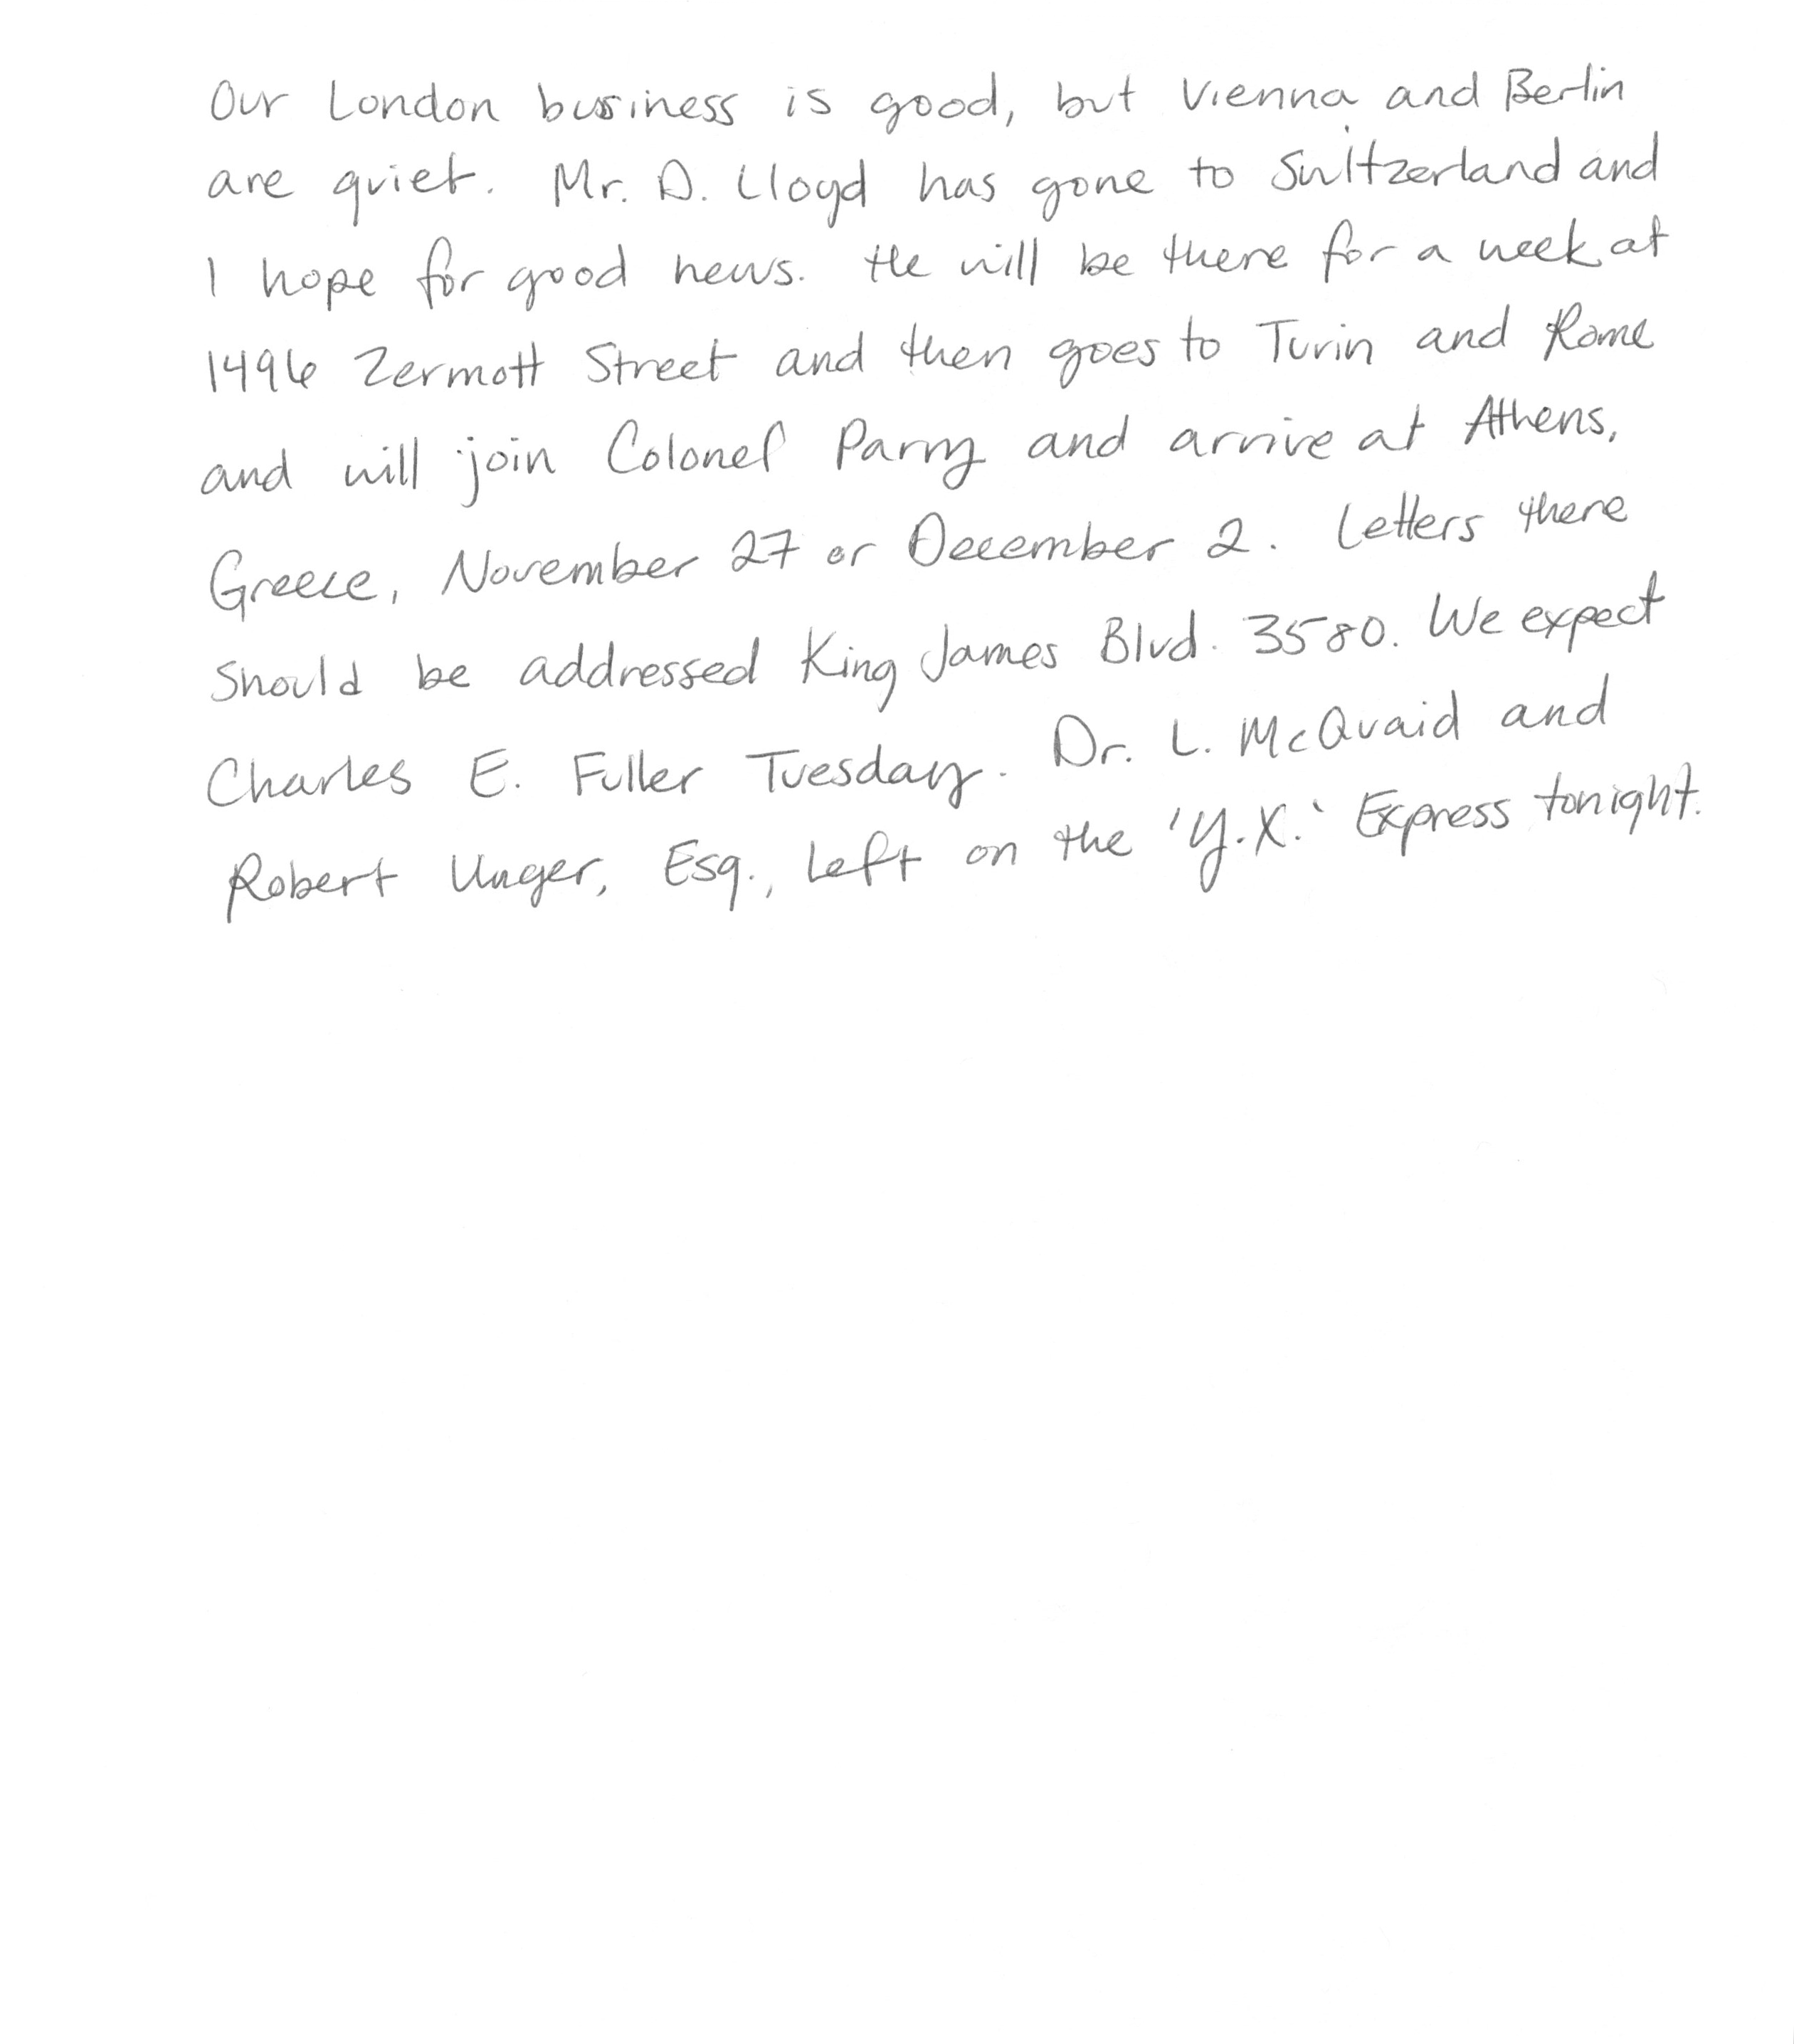 Our London business is good, but Vienna and Berlin
are quiet. Mr. D. Lloyd has gone to Switzerland and
I hope for good news. He will be there for a week at
1496 Zermott Street and then goes to Turin and Rome
and will join Colonel Parry and arrive at Athens,
Greece, November 27 or December 2. Letters there
should be addressed King James Blvd. 3580. We expect
Charles E. Fuller Tuesday. Dr. L. McQuaid and
Robert Unger, Esq., left on the 'Y.X.' Express tonight.